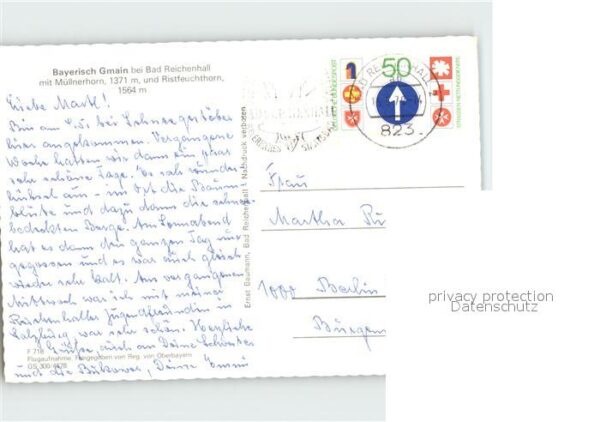 Bayerisch Gmain bei Bad Reichenhall
mit Müllnerhorn, 1371 m, und Ristfeuchthorn,
1564 m
Liebe Martl!
Bin am bei Schneegestöber
hier angekommen. Vergangene
Woche hatten wir dann ein paar
sehr schöne Tage. Es sah wunder-
hübsch aus - im Ort die Baum-
blüte und dazu dann die schnee-
bedeckten Berge. Am Sonnabend
hat es dann den ganzen Tag nur
gegossen und es war auch gleich
wieder sehr kalt. Am vergangenen
Mittwoch war ich mit meiner
Reichenhaller Jugendfreundin in
Salzburg, war sehr schön. Herzliche
Grüße, auch an Deine Schwester
und die Deine
F 718
Flugaufnahme, Freigegeben von Reg. von Oberbayern
GS 300/4478
Ernst Baumann, Bad Reichenhall Nachdruck verboten
DEUTSCHE BUNDESPOST
50
BAD REICHENHALL
823
Frau
Martha
1000 Berlin
privacy protection
Datenschutz